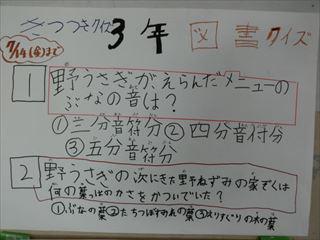 きつつきクイズ 3年 図書クイズ
7/14(金)まで
1 野うさぎが、えらんだメニューの
ぶなの音は?
①三分音符分②四分音付分
③五分音符分
2 野うさぎの次にきた野ねずみの家ぞくは
何の葉っぱのかさをかついでいた?
①ぶなの葉②たちつぼすみれの葉③えりすぐりの木の葉